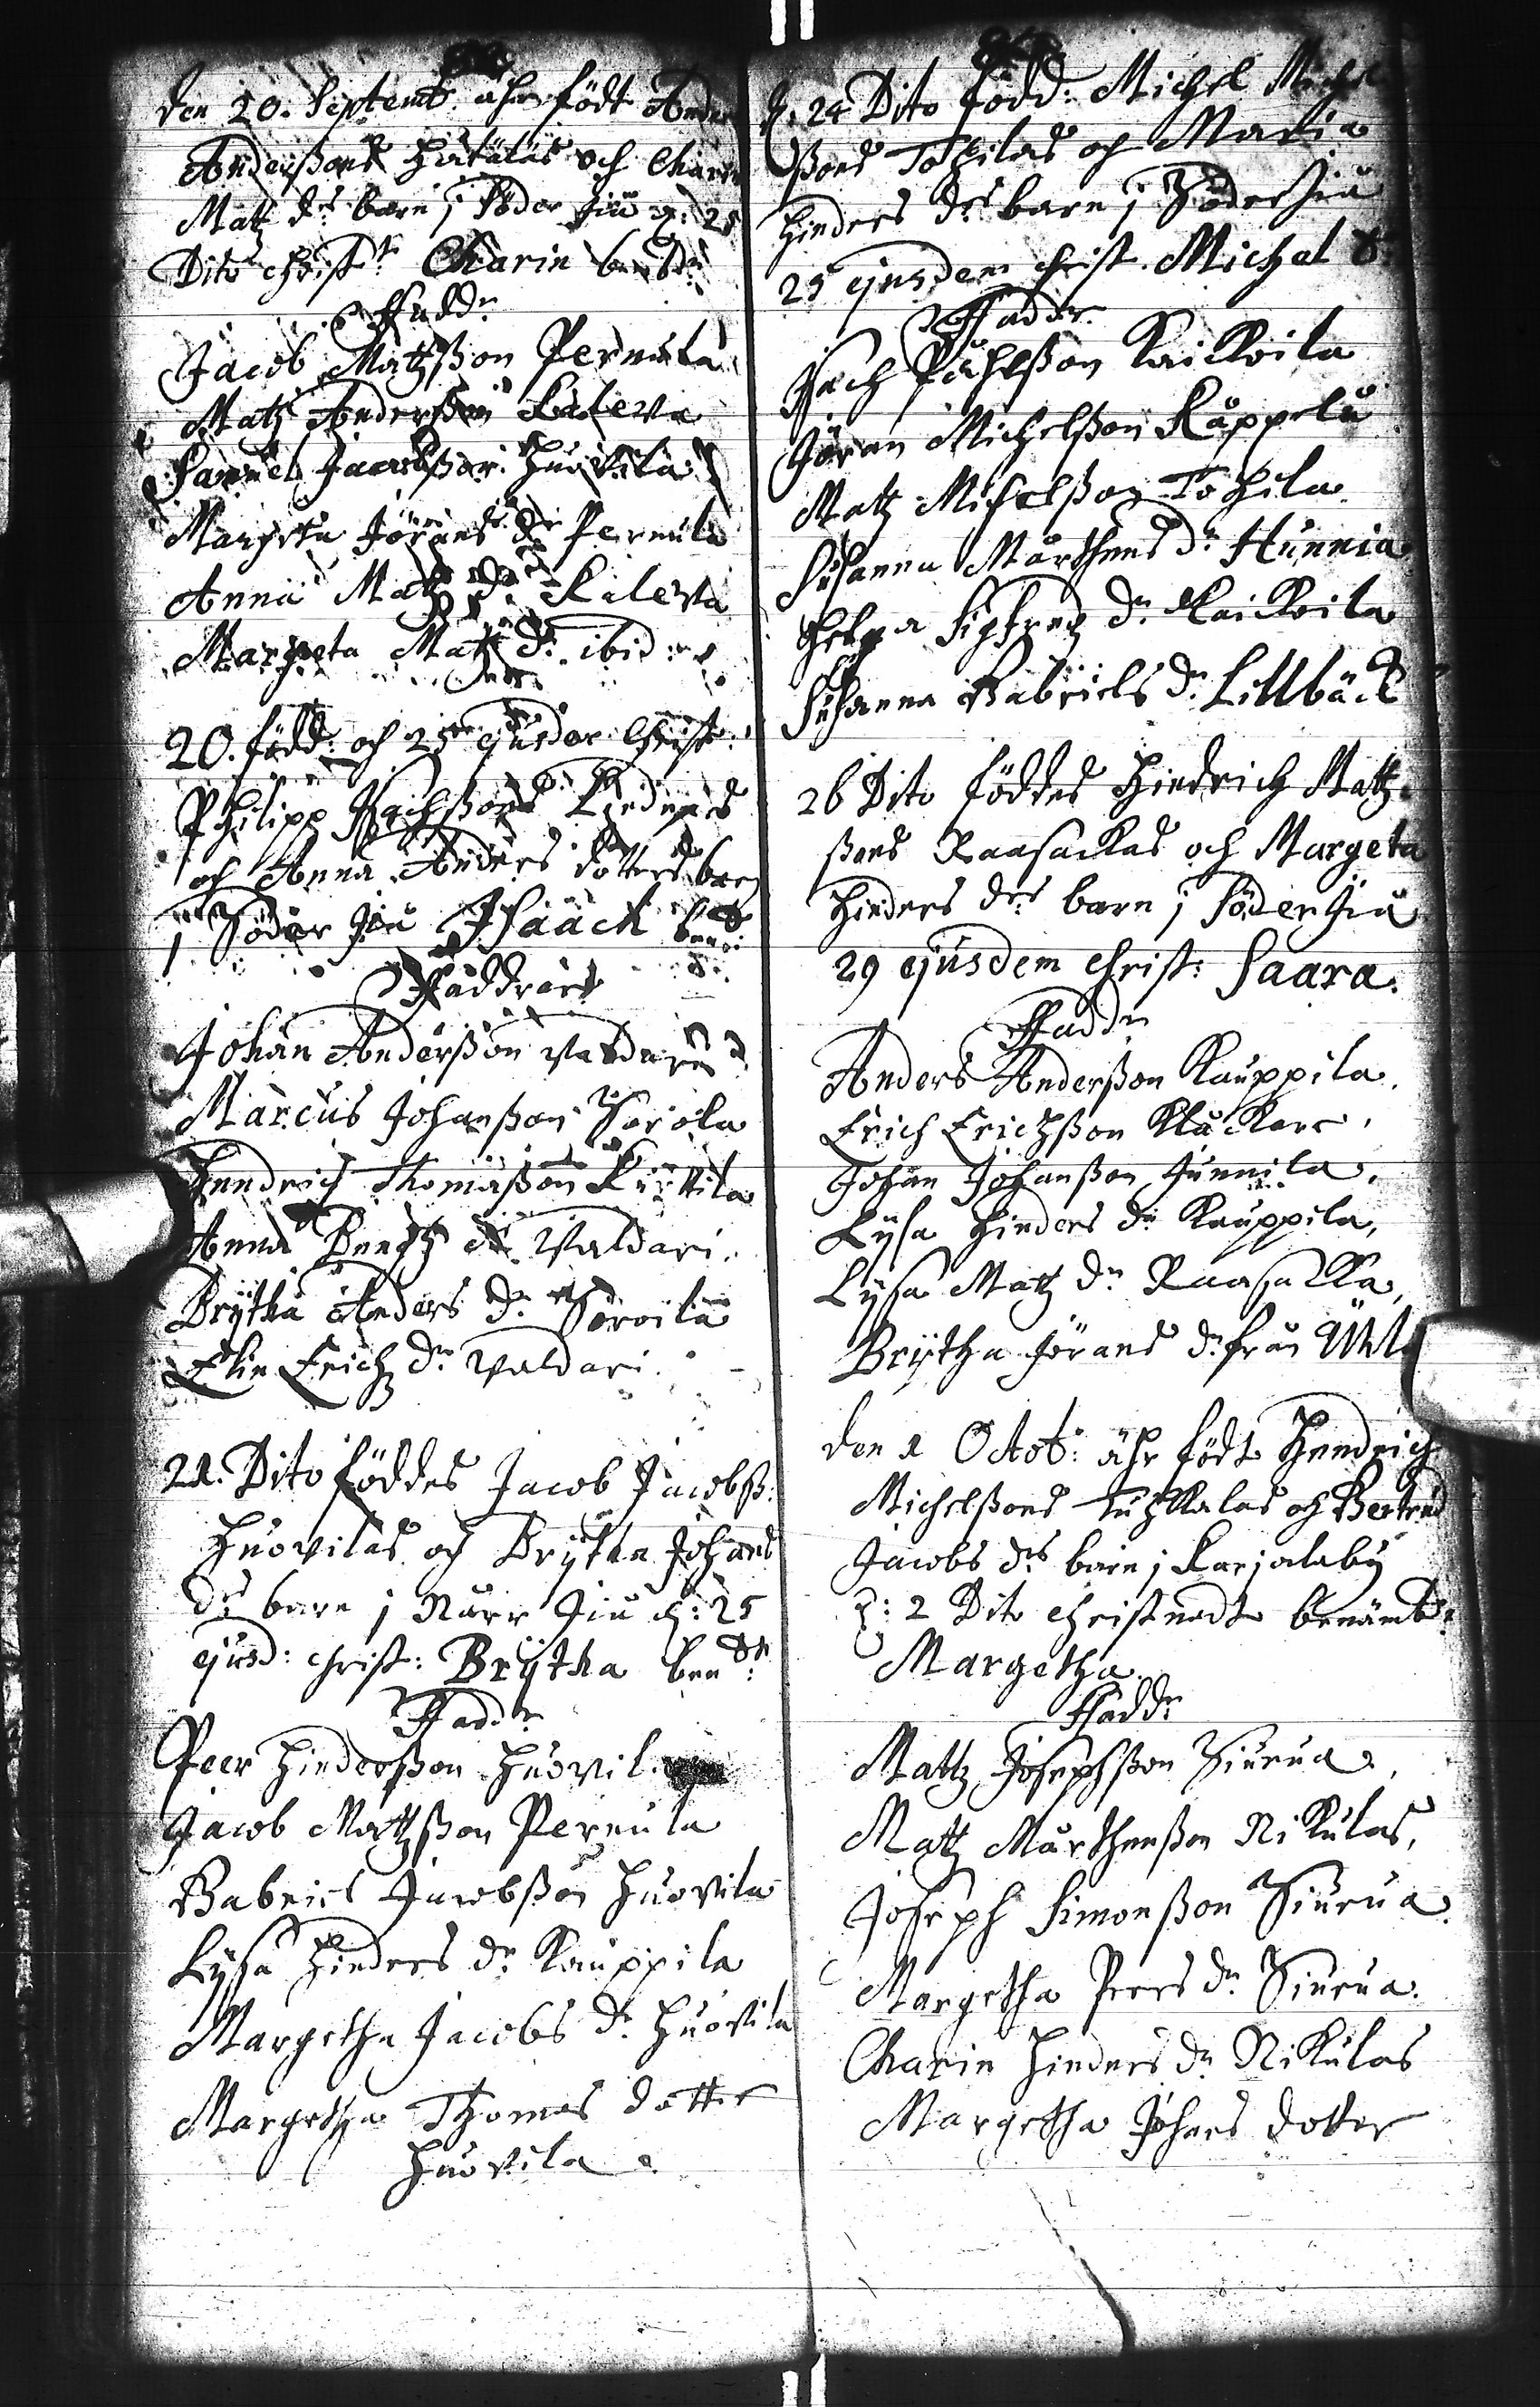 den 20. Septemb. ähr födt Ander
Anderßons Hatalas och Charin
Matz drs barn j Söder Jiu d: 25
Dito christn: Charin be:d
Fadd:r
Jacob Matzßon Pernula
Matz Anderßon Kaleva
Samuel Jacobßon Huovila
Margeta Jörans dr Pernula
Anna Matz dr Kaleva
Margeta Matz dr ibid:
20. född: och 25 ejusdem Christ:
Philipp Isachßons
och Anna Anders dotters barn
j Söder Jiu Isaach
Faddrar
Johan Anderßon Valdari
Marcus Johanßon Sorola
Hendrich Thomaßon Kurttila
Anna Bengtz dr Valdari.
Brÿtha Anders dr Soroila
Elin Erichz dr Valdari.
21. Dito föddes Jacob Jacobß:
Huovilas och Brÿtha Johans
drs barn j Norr Jiu d: 25
ejusd: christ: Brÿtha ben:dt
Fadd:r
Peer Hinderßon Huovila
Jacob Matzßon Pernula
Gabriel Jacobßon Huovila
Lÿsa Hinders dr Kauppila
Margetha Jacobs dr Huovila
Margetha Thomas dotter
Huovila.
d. 24 Dito född: Michel Michel
ßons Tohilas och Maria
Hinders drs barn j Söder Jiu
25 ejusdem christ. Michel
Fadd:r
Isach Påhlßon Kaickoila
Jöran Michelßon Kåppelu
Matz Michelßon Tohila
Susanna Mårthens dr Hunnia
Helga Sigfredz dr Kaickoila
Susanna Gabriels dr Lillbäck
26 Dito föddes Hindrich Matz-
ßons Raasackas och Margeta
Hinders drs barn j Söder Jiu
29 ejusdem christ: Saara.
Fadd:r
Anders Anderßon Kauppila.
Erich Erichßon Klåckare.
Johan Johanßon Junnila.
Lÿsa Hinders dr Kauppila,
Lÿsa Matz dr Raasakka,
Brÿtha Jörans dr från Uhla
den 1 Octob: ähr födt Hendrich
Michelßons Tuhkalas och Bertrud
Jacobs drs barn j Karjalaby
d: 2 Dito christnadt benämbd:
Margetha.
Fadd:r
Mattz Josephßon Siurua.
Matz Mårthenßon Nikulas,
Joseph Simonßon Siurua.
Margetha Peers dr Siurua.
Charin Hinders dr Nikulas
Margetha Johans dotter